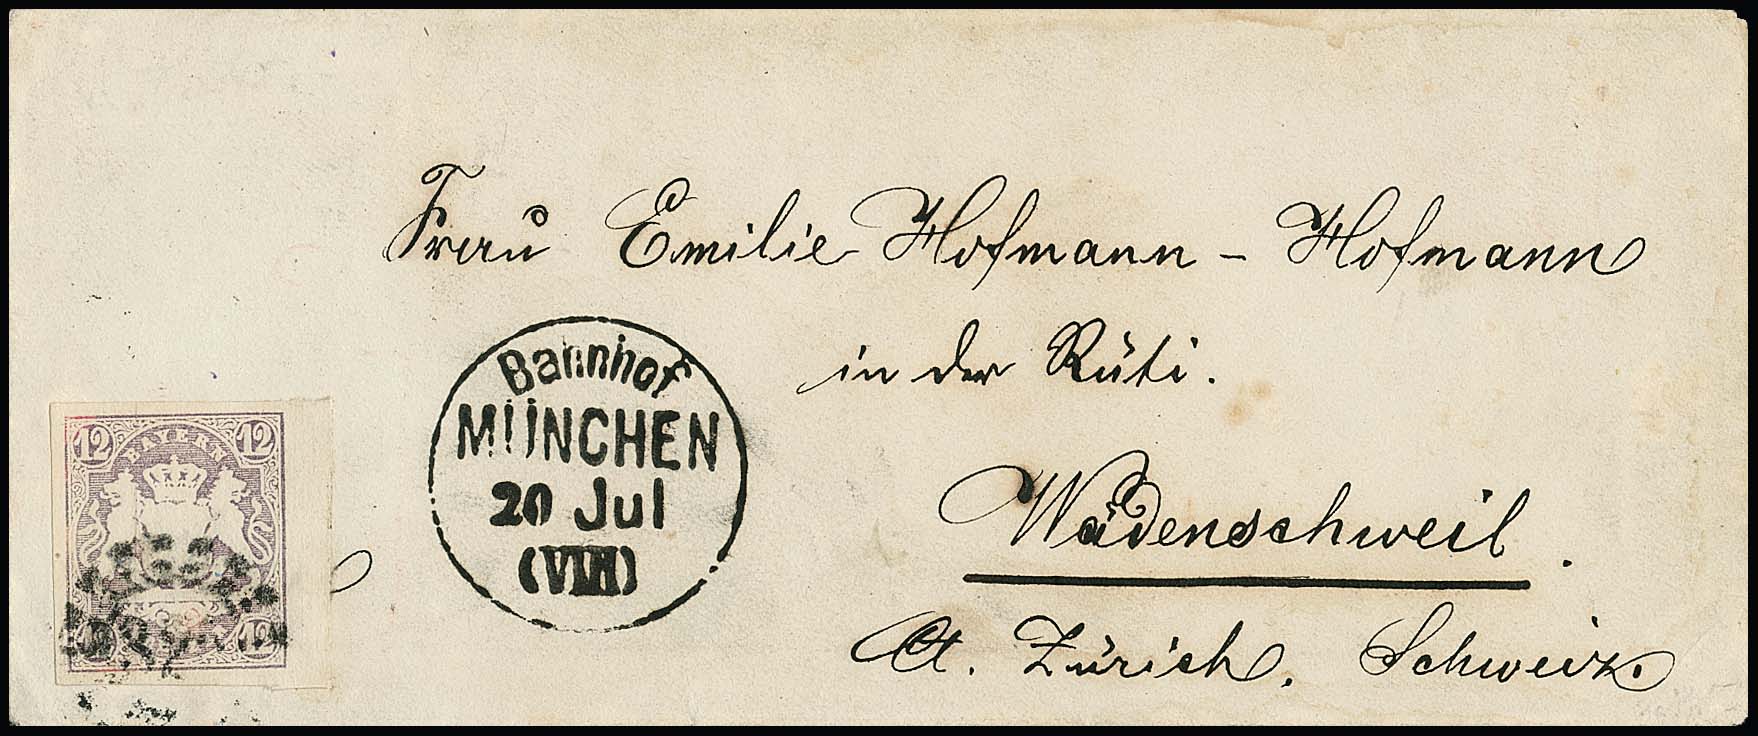 Frau Emilie Hofmann - Hofmann
in der Rüti.
Wädenschweil.
Ct. Zürich. Schweiz.
Bahnhof
MÜNCHEN
20 Jul
(VIII)
12 12
BAYERN
12 12